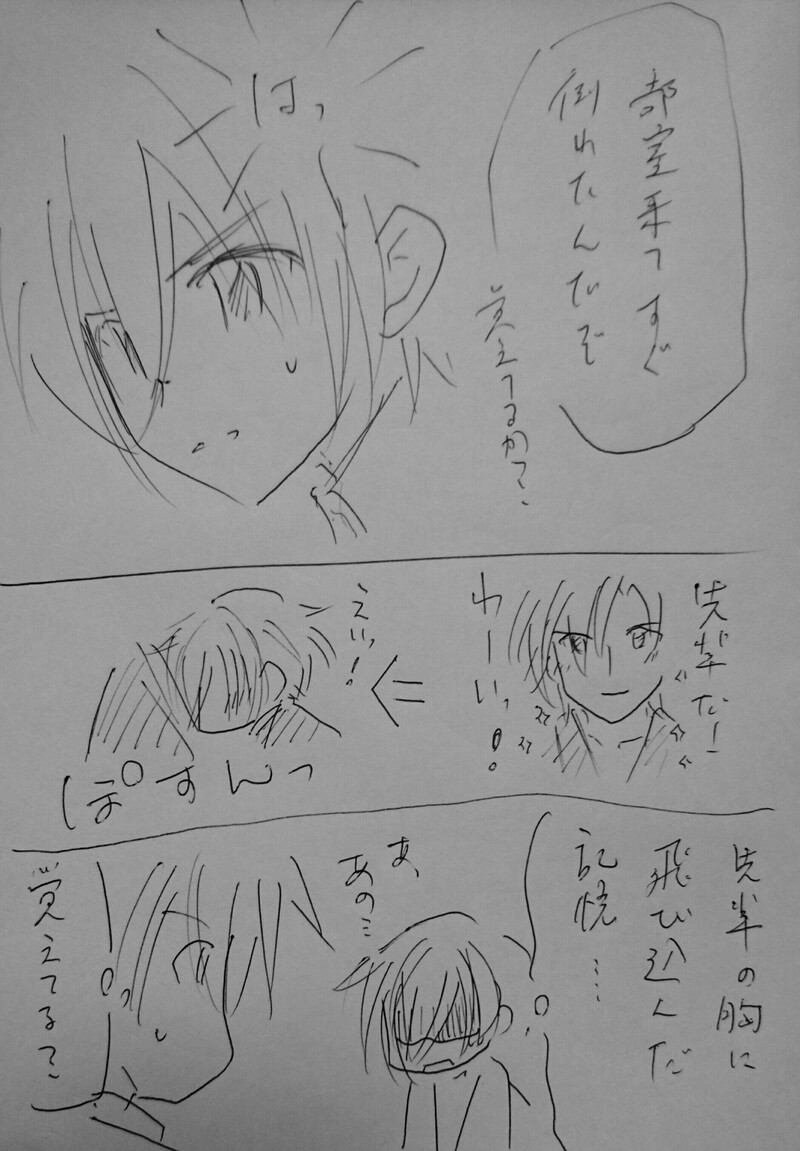 部室来てすぐ
倒れたんだぞ
覚えてるか?
はっ
先輩だー
わーいっ!
えいっ!
ぽすんっ
先輩の胸に
飛び込んだ
記憶…
あ、
あの…
覚えてる?